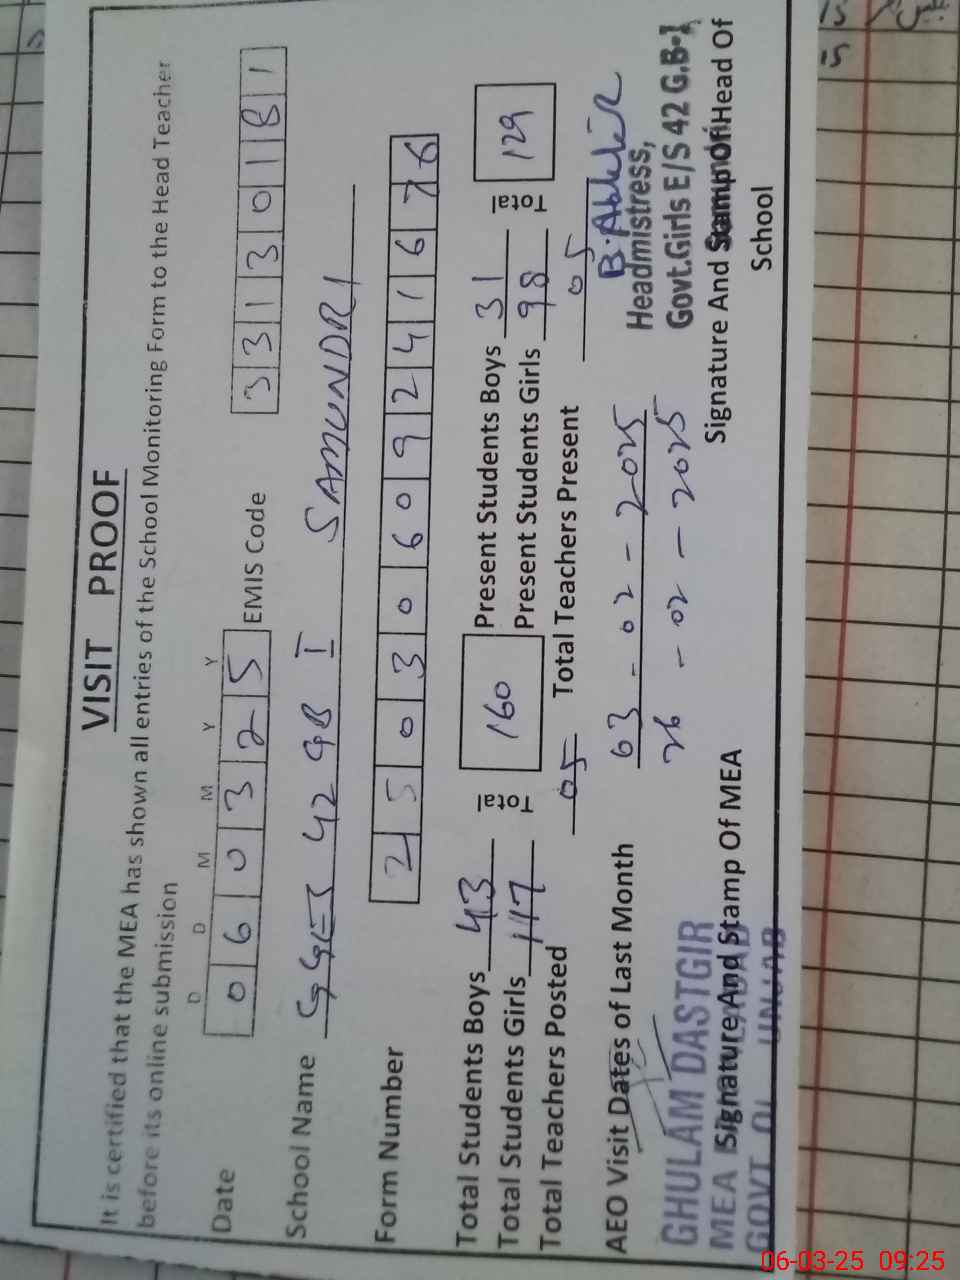 VISIT PROOF
It is certified that the MEA has shown all entries of the School Monitoring Form to the Head Teacher
before its online submission
D D M M Y Y
Date 0 6 0 3 2 5 EMIS Code 3 3 1 3 0 1 8 1
School Name GGES 42 GB I SAMUNDRI
Form Number 2 5 0 3 0 6 0 9 2 4 1 6 7 6
Total Students Boys 43 Total 160 Present Students Boys 31 Total 129
Total Students Girls 117 Present Students Girls 98
Total Teachers Posted 05 Total Teachers Present 05
AEO Visit Dates of Last Month 03 - 02 - 2025
26 - 02 - 2025
Headmistress,
Govt.Girls E/S 42 G.B-1
GHULAM DASTGIR
MEA
Signature And Stamp Of MEA
Signature And Stamp Of Head Of
School
GOVT OF
06-03-25 09:25